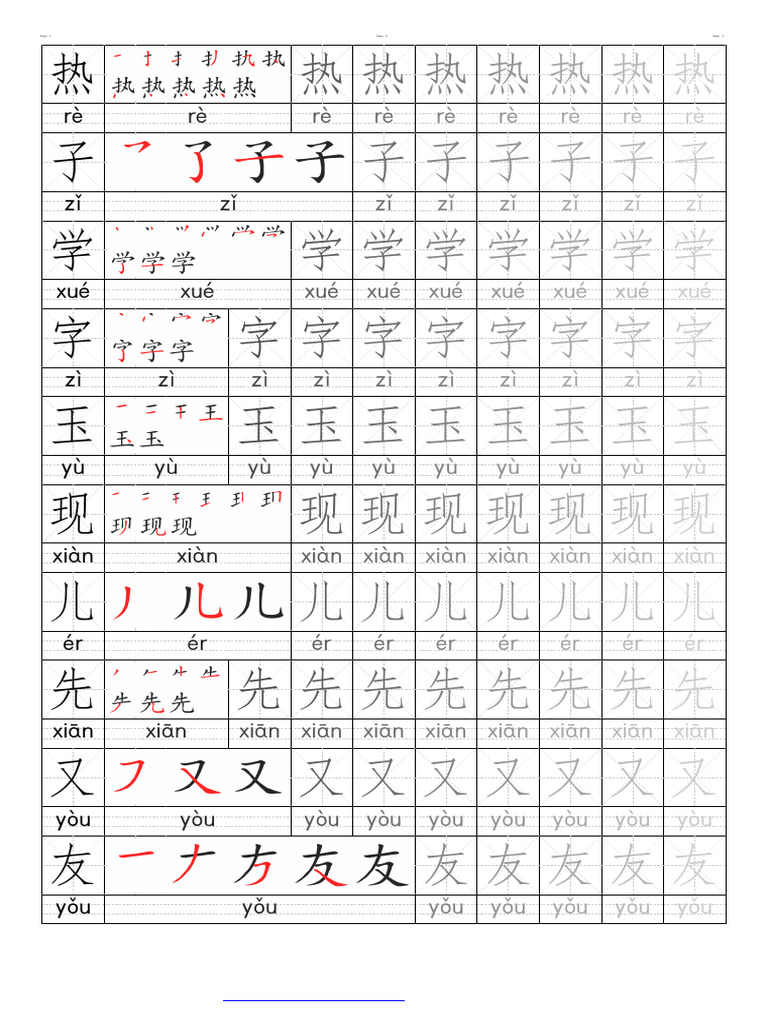 热 热 热 热 热 热 热 热 热 热
rè rè rè rè rè rè rè rè rè
子 了 子 子 子 子 子 子 子 子
zǐ zǐ zǐ zǐ zǐ zǐ zǐ zǐ
学 学 学 学 学 学 学 学 学 学
xué xué xué xué xué xué xué xué xué
字 字 字 字 字 字 字 字 字 字 字
zì zì zì zì zì zì zì zì zì zì
玉 玉 玉 玉 玉 玉 玉 玉 玉 玉 玉
yù yù yù yù yù yù yù yù yù yù
现 现 现 现 现 现 现 现 现 现
xiàn xiàn xiàn xiàn xiàn xiàn xiàn xiàn xiàn
儿 儿 儿 儿 儿 儿 儿 儿 儿 儿
ér ér ér ér ér ér ér ér ér
先 先 先 先 先 先 先 先 先 先 先
xiān xiān xiān xiān xiān xiān xiān xiān xiān xiān
又 又 又 又 又 又 又 又 又 又
yòu yòu yòu yòu yòu yòu yòu yòu yòu
友 友 友 友 友 友 友 友
yǒu yǒu yǒu yǒu yǒu yǒu yǒu